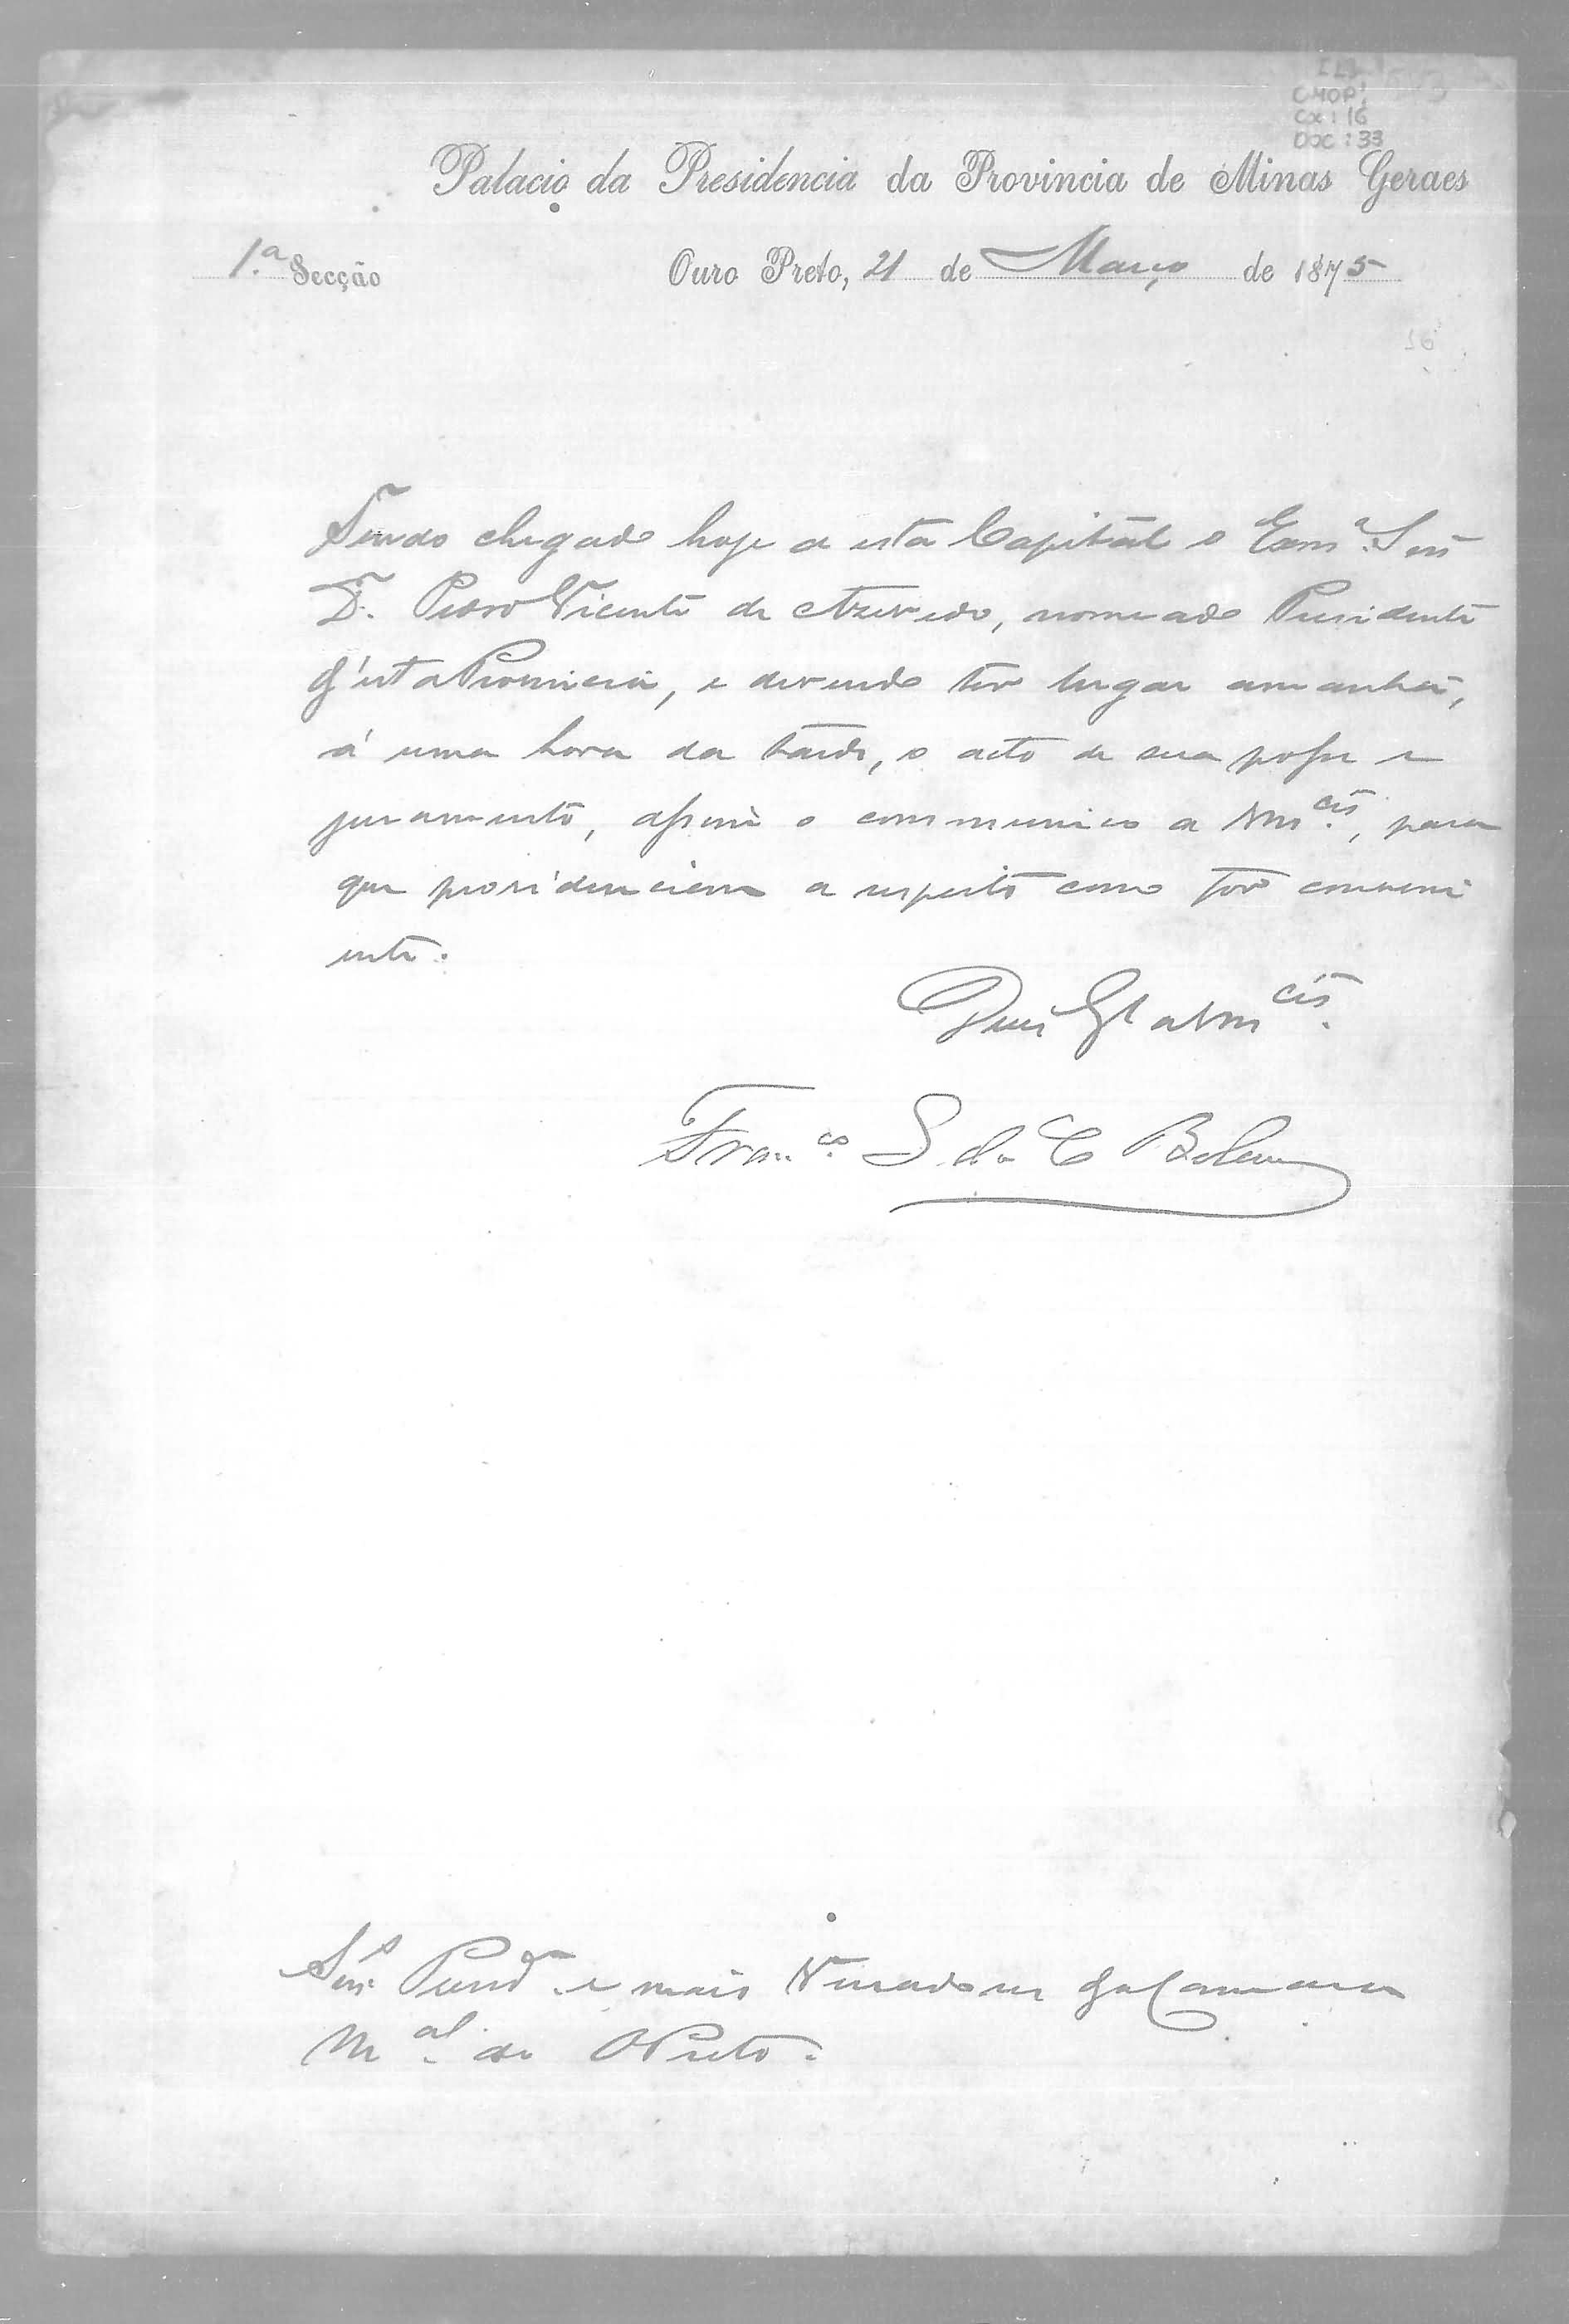 CMOP
Cx: 16
Doc: 33
Palacio da Presidencia da Provincia de Minas Geraes
1.ª Secção
Ouro Preto, 21 de Março de 1875
Tendo chegado hoje a esta Capital o Exm.º Senr
D.r Pedro Vicente de Azevedo, nomeado Presidente
d'esta Provincia, e devendo ter lugar amanhã,
á uma hora da tarde, o acto de sua posse e
juramento, assim o communico a Vm.cês, para
que providenciem a respeito como for conveni
ente.
Deus G.e a Vm.cês
Fran.co L da C Belem
Snr.s Presid.e e mais Vereadores da Camara
M.al de O Preto.